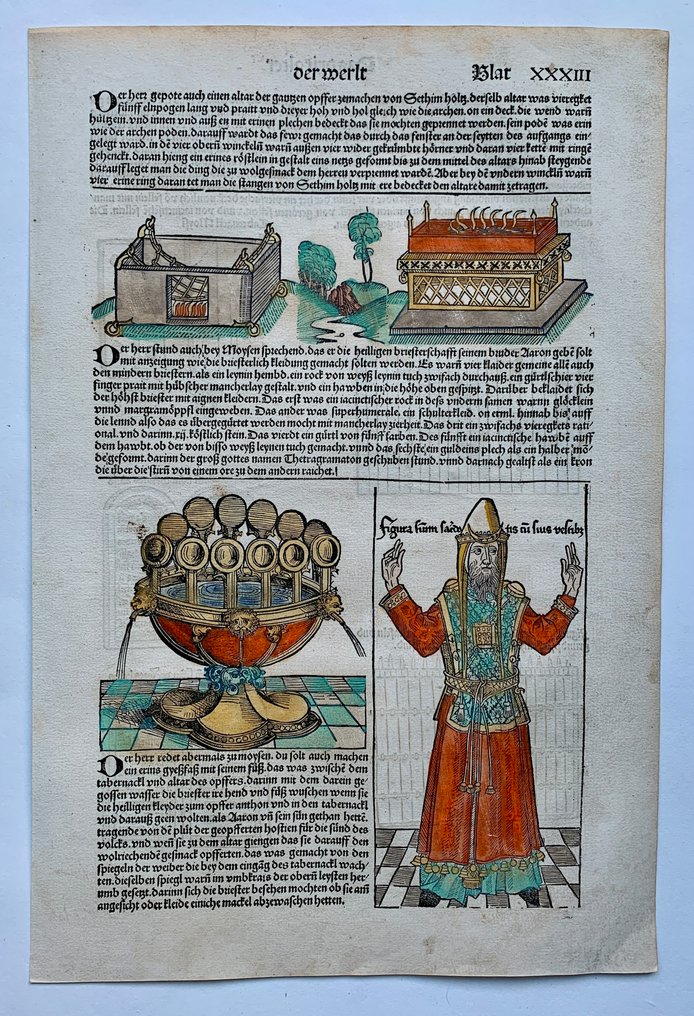 der werlt Blat XXXIII
Der herr gepote auch einen altar der gantzen opffer zemachen von Sethim holtz. derselb altar was vieregket
fünff elnpogen lang vnd prait vnd dreyer hoh vnd hol gleich wie die archen. on ein deck. die wend warn
hültzein. vnd innen vnd außen mit erinen plechen bedeckt das sie mochten geprennet werden. sein podē was erin
wie der archen poden. darauff wardt das fewr gemacht das durch das fenster an der seytten des aufgangs ein-
gelegt ward. in dē vier obern winckeln warn außen vier wider gekrümbte hörner vnd daran vier kette mit ringē
gehenckt. daran hieng ein erines röstlein in gestalt eins netzs geformt bis zu dem mittel des altars hinab steygende
darauff leget man die ding die zu wolgesmack dem herren verprennet wardē. Aber bey dē vndern winckln warn
vier erine ring daran tet man die stangen von Sethim holtz mit ere bedecket den altare damit zetragen.
Der herr stund auch bey Moysen sprechend. das er die heiligen briesterschafft seinem bruder Aaron gebē solt
mit anzeigung wie die briesterlich kleidung gemacht solten werden. Es warn vier klaider gemeine allē auch
den mindern briestern. als ein leynin hembd. ein rock von weyß leynin tuch zwifach durchauß. ein gürtl schier vier
finger prait mit hübscher mancherlay gestalt. vnd ein hawben in die höhe oben gespitzt. Darüber beklaidet sich
der höhst briester mit aignen kleidern. Das erst was ein iacinctischer rock in des vndern samen warn glöcklein
vnnd margramöpffl eingeweben. Das ander was superhumerale. ein schulterkleid. on erml. hinnab bis auff
die lennd also das es übergegürtet werden mocht mit mancherlay zierheit. Das drit ein zwifachs vieregkets rati-
onal. vnd darinn. xij. köstlich stein. Das vierdt ein gürtl von fünff farben. Des fünfft ein iacinctische hawbē auff
dem hawbt. ob der von bisso weyß leynen tuch gemacht. vnnd das sechste ein guldeins plech als ein halber mō-
de geformt. darinn der groß gottes namen Thetragramaton geschriben stund. vnnd darnach gealtst als ein kron
die über die stirn von einem ore zu dem andern raichet.
Figura sūmi sacerdo tis cū suis vestibꝰ
Der herr redet abermals zu moysen. du solt auch machen
ein erins gyeßfaß mit seinem fůß. das was zwischē dem
tabernackl vnd altar des opffers. darinn mit dem darein ge-
gossen wasser die briester ire hend vnd füß wuschen wenn sie
die heiligen kleyder zum opffer anthon vnd in den tabernackl
vnd darauß geen wolten. als Aaron vñ sein sün gethan hettē.
tragende von dē plůt der geopfferten hostien für die sünd des
volcks. vnd weñ sie zu dem altar giengen das sie darauff den
wolriechendē gesmack opfferten. das was gemacht von den
spiegeln der weiber die bey dem eingāg des tabernackl wach-
ten. dieselben spiegl warn im vmbkrais der obern leysten her-
umb gesetzt. darinn sich die briester besehen mochten ob sie am
angesicht oder kleide einiche mackel abzewaschen hetten.